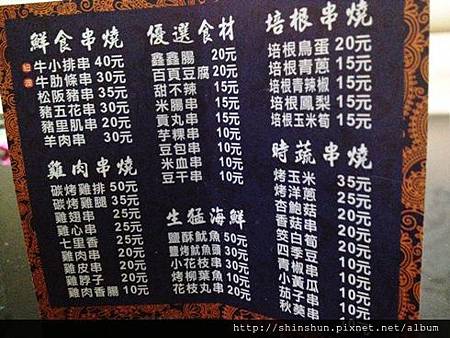 鮮食串燒
牛小排串 40元
牛肋條串 30元
松阪豬串 35元
豬五花串 30元
豬里肌串 20元
羊肉串 30元
雞肉串燒
碳烤雞排 50元
碳烤雞腿 35元
雞翅串 25元
雞心串 25元
七里香 25元
雞肉串 20元
雞皮串 20元
雞脖子 20元
雞肉香腸 10元
優選食材
鑫鑫腸 20元
百頁豆腐 20元
甜不辣 15元
米腸串 15元
貢丸串 15元
芋粿串 10元
豆包串 10元
米血串 10元
豆干串 10元
生猛海鮮
鹽酥魷魚 50元
鹽烤魷魚頭 30元
小花枝串 30元
烤柳葉魚 10元
花枝丸串 20元
培根串燒
培根鳥蛋 20元
培根青蔥 15元
培根青辣椒 15元
培根鳳梨 15元
培根玉米筍 15元
時蔬串燒
烤玉米 35元
烤洋蔥 25元
杏鮑菇 25元
香菇串 20元
筊白筍 20元
四季豆 20元
青椒串 10元
小黃瓜 10元
茄子串 10元
秋葵串 10元
http://shinshun.pixnet.net/album